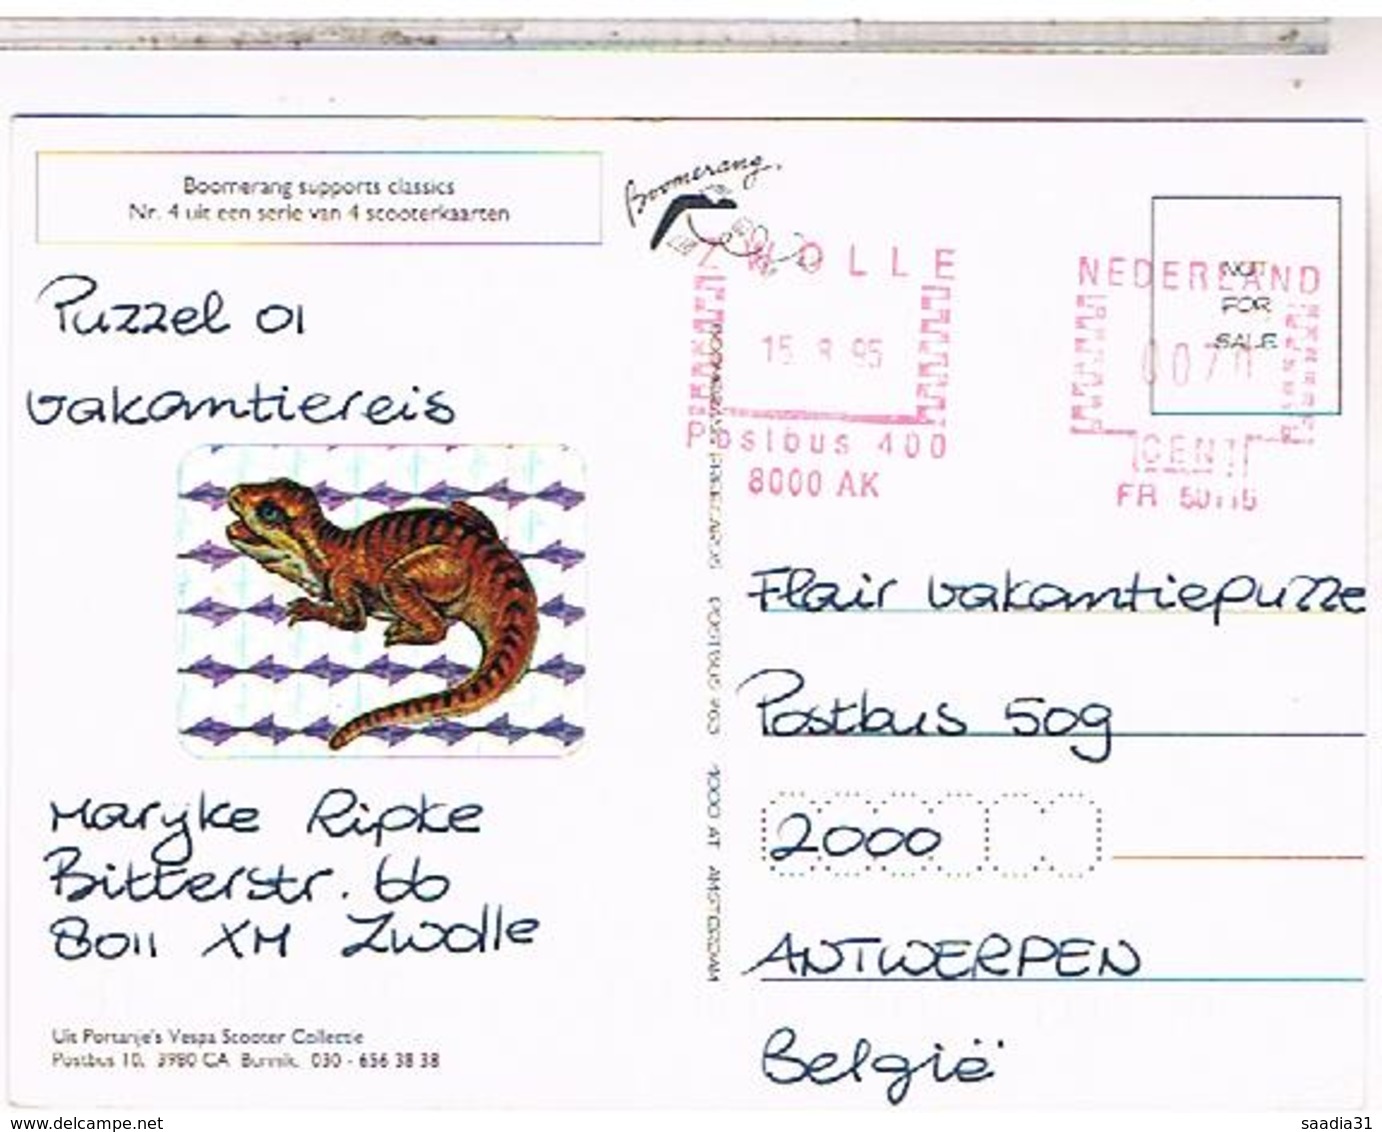 Boomerang supports classics
Nr. 4 uit een serie van 4 scooterkaarten
Boomerang.
Puzzel 01
vakantiereis
Maryke Ripke
Bitterstr. 66
8011 XM Zwolle
Uit Portanje's Vespa Scooter Collectie
Postbus 10, 3980 CA Bunnik, 030 - 656 38 38
POSTBUS 963 1000 AT AMSTERDAM
ZWOLLE
15 8 95
Postbus 400
8000 AK
NEDERLAND
NOT
FOR
SALE
0070
CENT
FR
Flair vakantiepuzze
Postbus 509
2000
ANTWERPEN
België
saadia31